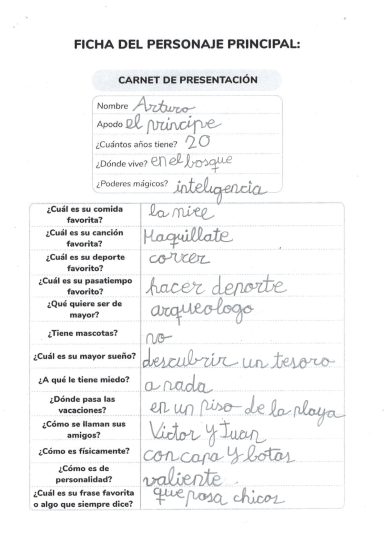 FICHA DEL PERSONAJE PRINCIPAL:
CARNET DE PRESENTACIÓN
Nombre Arturo
Apodo el principe
¿Cuántos años tiene? 20
¿Dónde vive? en el bosque
¿Poderes mágicos? inteligencia
¿Cuál es su comida favorita? la miel
¿Cuál es su canción favorita? Maquillate
¿Cuál es su deporte favorito? correr
¿Cuál es su pasatiempo favorito? hacer deporte
¿Qué quiere ser de mayor? arqueologo
¿Tiene mascotas? no
¿Cuál es su mayor sueño? descubrir un tesoro
¿A qué le tiene miedo? a nada
¿Dónde pasa las vacaciones? en un piso de la playa
¿Cómo se llaman sus amigos? Victor y Juan
¿Cómo es físicamente? con capa y botas
¿Cómo es de personalidad? valiente
¿Cuál es su frase favorita o algo que siempre dice? que pasa chicos